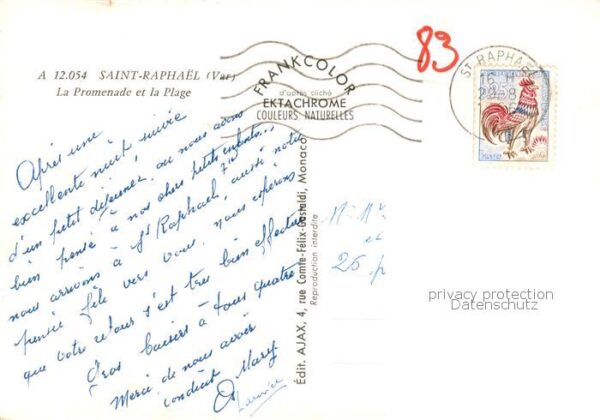 A 12.054 SAINT-RAPHAËL (Var)
La Promenade et la Plage
FRANKCOLOR
d'après cliché
EKTACHROME
COULEURS NATURELLES
83
ST RAPHAEL
16 H
Après une
excellente nuit suivie
d'un petit déjeuner, où nous avons
bien pensé à nos chers petits enfants...
nous arrivons à St Raphaël, aussi notre
pensée file vers vous. nous espérons
que votre retour s'est très bien effectué
Gros baisers à tous quatre
Merci de nous avoir
conduit
Mary
Édit. AJAX, 4, rue Comte-Félix-Gastaldi, Monaco
Reproduction interdite
et
25,
privacy protection
Datenschutz